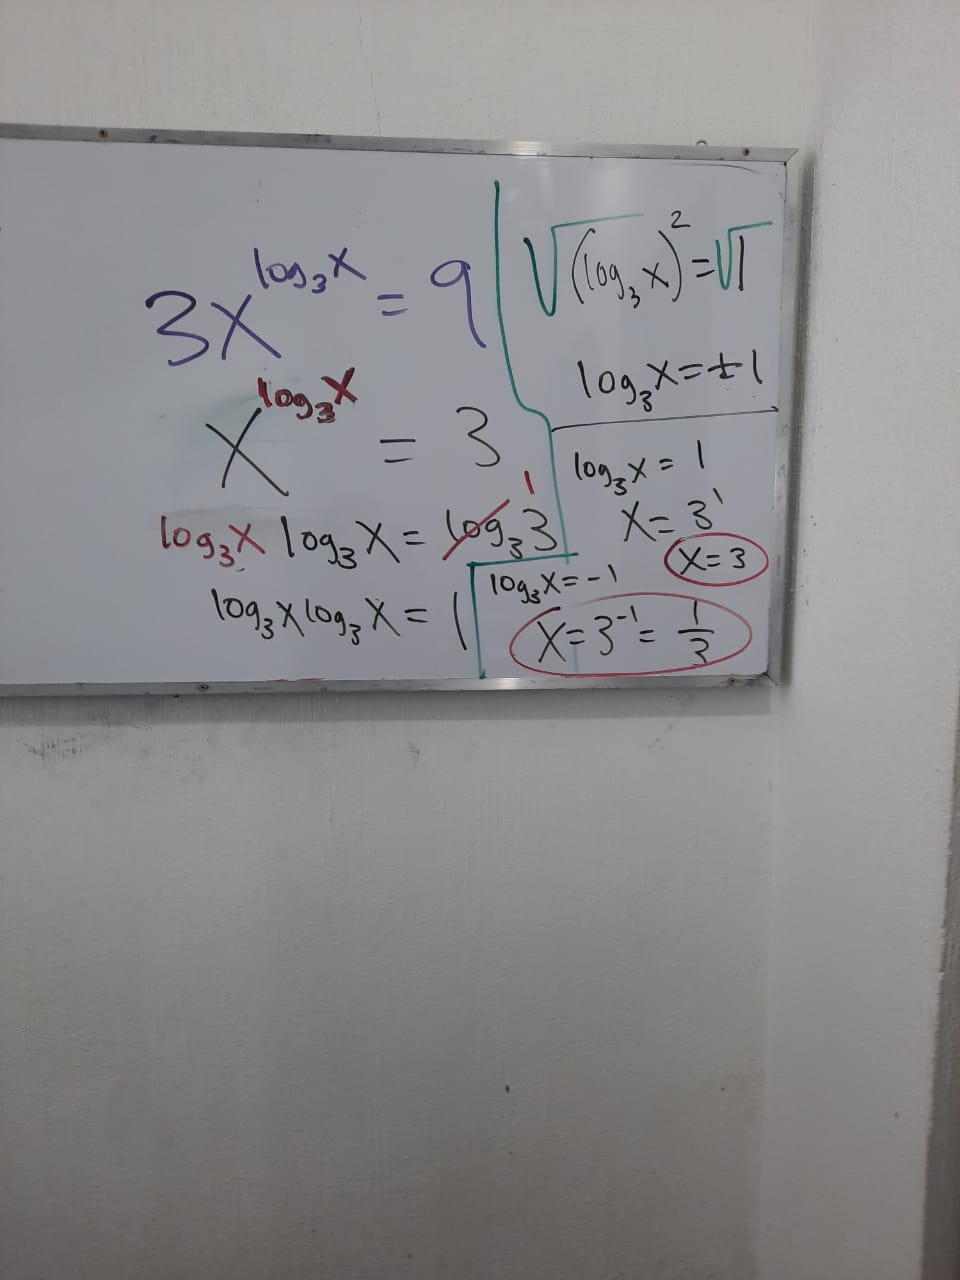 3x^{log₃x} = 9
x^{log₃x} = 3
log₃x log₃x = log₃3 1
log₃x log₃x = 1
√(log₃x)² = √1
log₃x = ±1
log₃x = 1
x = 3¹
x = 3
log₃x = -1
x = 3⁻¹ = 1/3